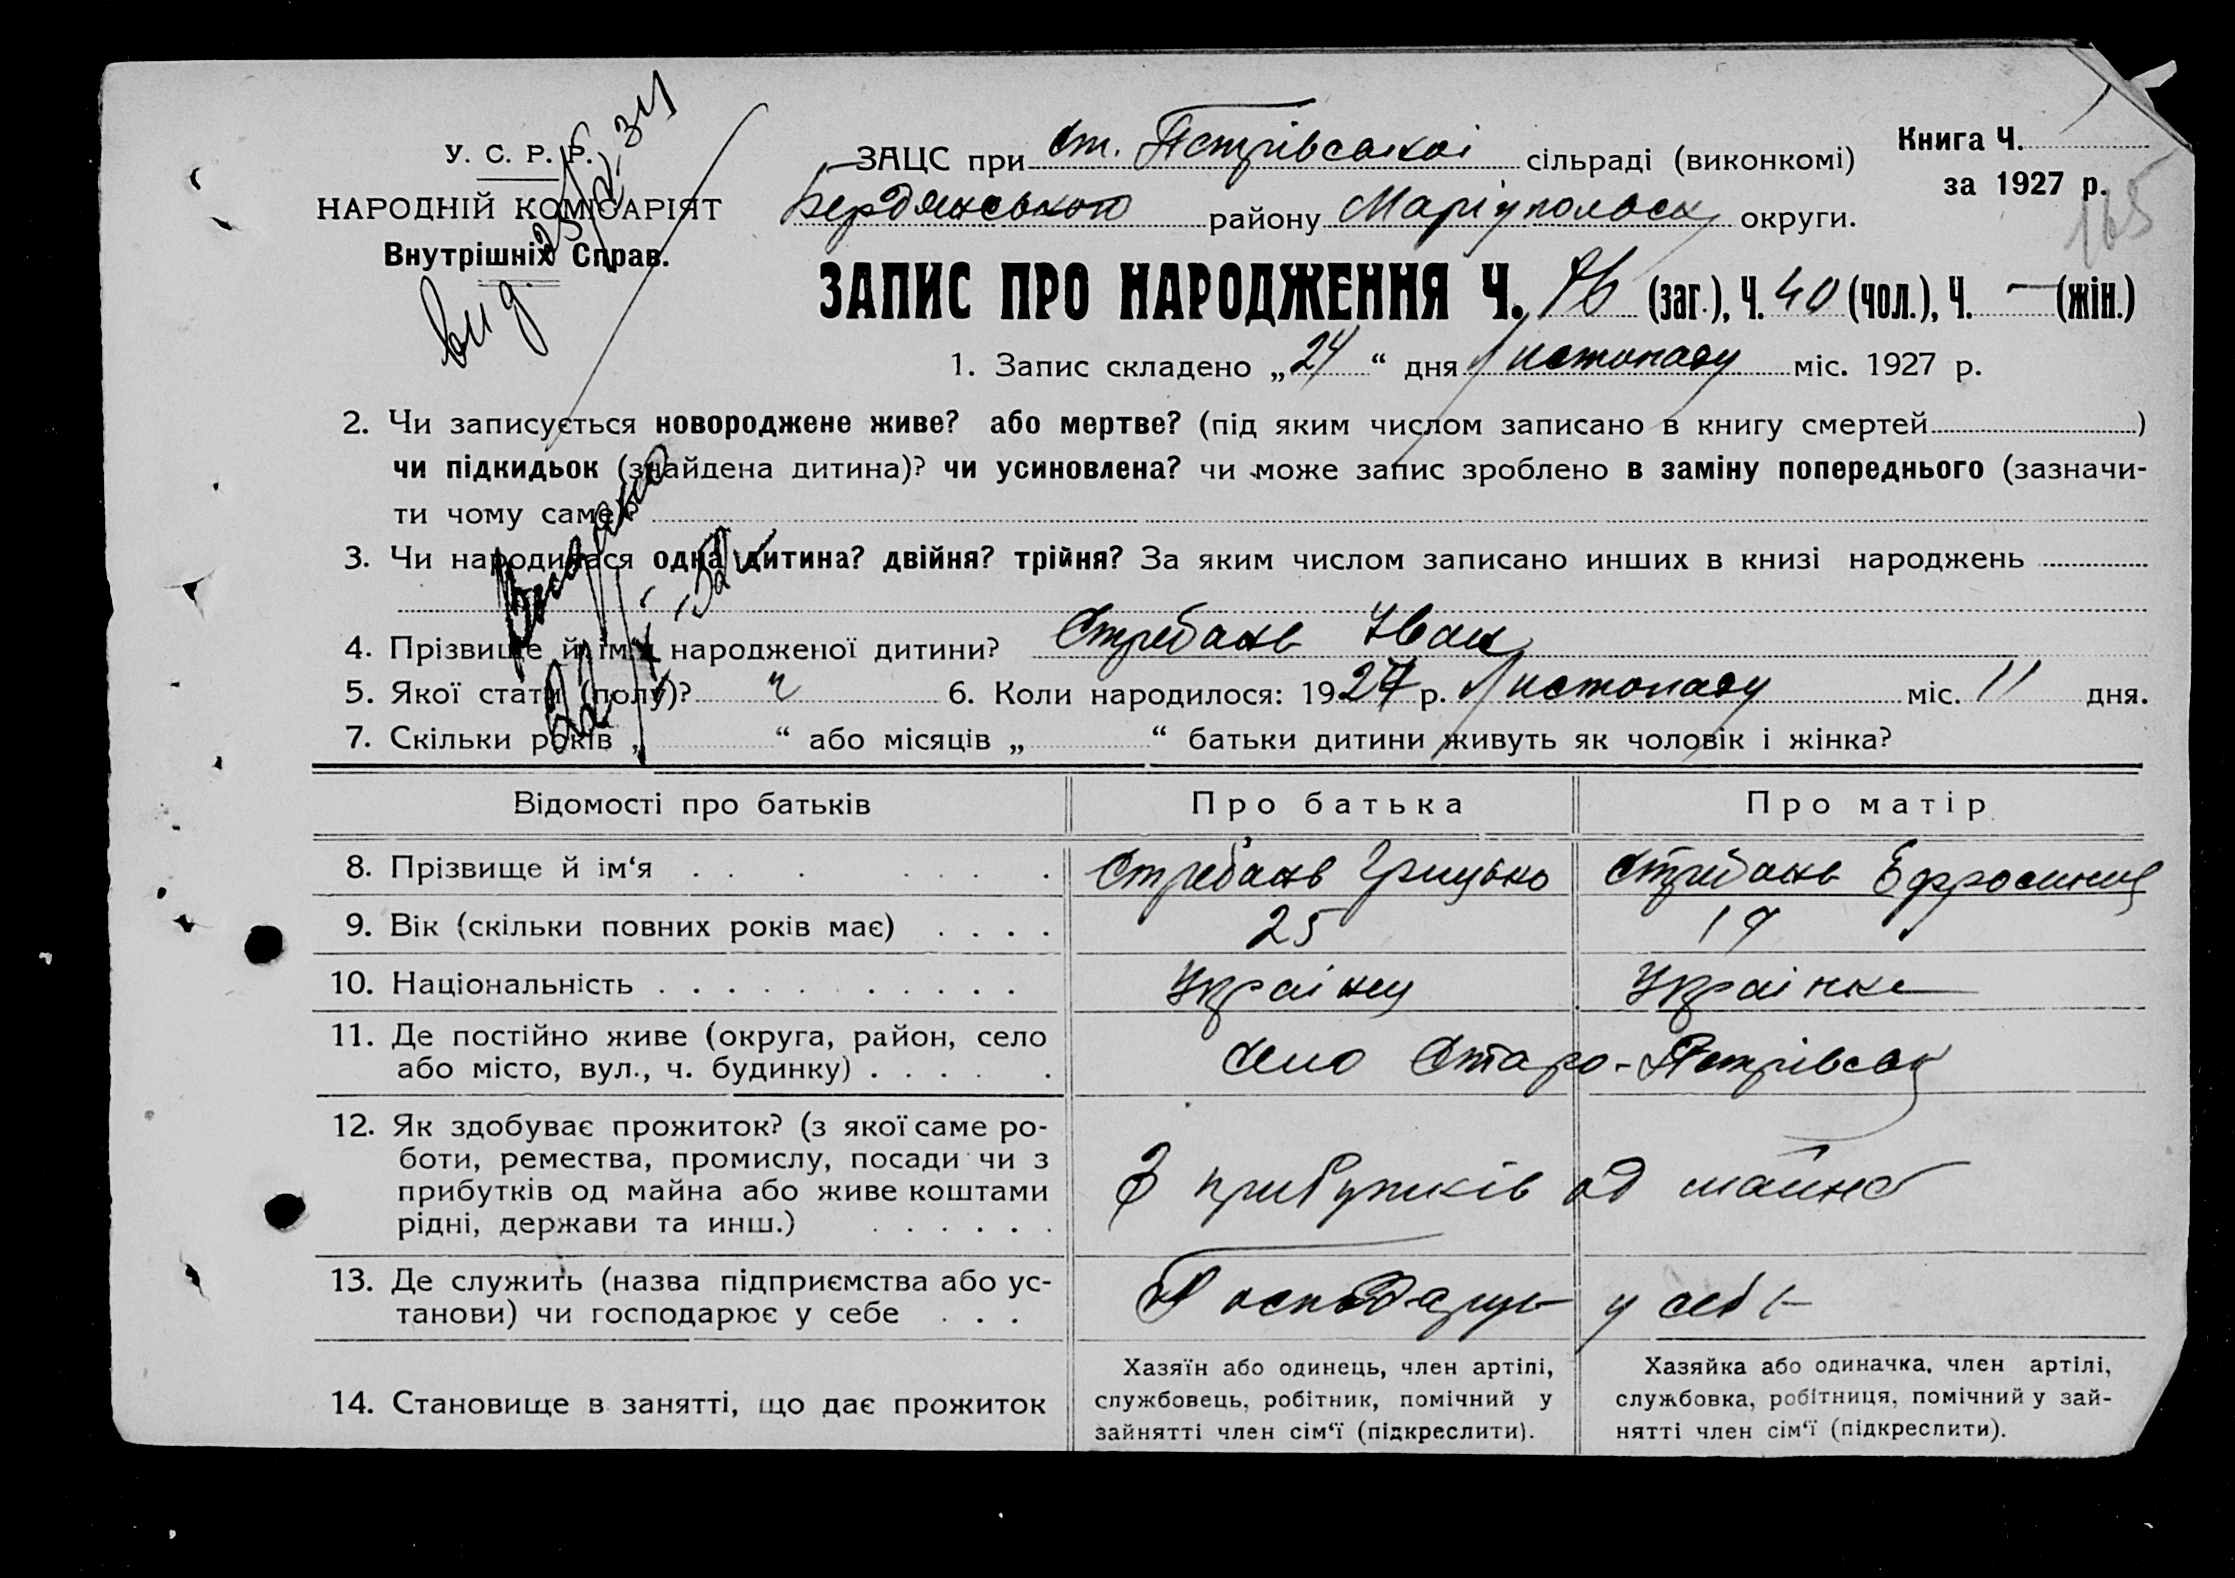 У. С. Р. Р.
НАРОДНІЙ КОМІСАРІЯТ
Внутрішніх Справ.
ЗАЦС при Ст. Петрівської сільраді (виконкомі)
Книга Ч.
за 1927 р.
165
Бердянського району Маріупольськ округи.
ЗАПИС ПРО НАРОДЖЕННЯ Ч. 76 (заг.), Ч. 40 (чол.), Ч. — (жін.)
1. Запис складено „24“ дня Листопаду міс. 1927 р.
2. Чи записується новороджене живе? або мертве? (під яким числом записано в книгу смертей )
чи підкидьок (знайдена дитина)? чи усиновлена? чи може запис зроблено в заміну попереднього (зазначи-
ти чому саме)
3. Чи народилася одна дитина? двійня? трійня? За яким числом записано инших в книзі народжень
4. Прізвище й ім'я народженої дитини? Стребань Іван
5. Якої стати (полу)? ч 6. Коли народилося: 1927 р. Листопаду міс. 11 дня.
7. Скільки років „ “ або місяців „ “ батьки дитини живуть як чоловік і жінка?
вид.
Видано
Відомості про батьків Про батька Про матір
8. Прізвище й ім‘я Стребань Грицько Стребань Ефросиния
9. Вік (скільки повних років має) 25 19
10. Національність Украінец Украінка
11. Де постійно живе (округа, район, село
або місто, вул., ч. будинку) Село Старо-Петрівськ
12. Як здобуває прожиток? (з якої саме ро-
боти, ремества, промислу, посади чи з
прибутків од майна або живе коштами
рідні, держави та инш.) З прибутків од майна
13. Де служить (назва підприємства або ус-
танови) чи господарює у себе Господарує у себе
14. Становище в занятті, що дає прожиток
Хазяїн або одинець, член артілі,
службовець, робітник, помічний у
зайнятті член сім‘ї (підкреслити).
Хазяйка або одиначка, член артілі,
службовка, робітниця, помічний у зай-
нятті член сім‘ї (підкреслити).